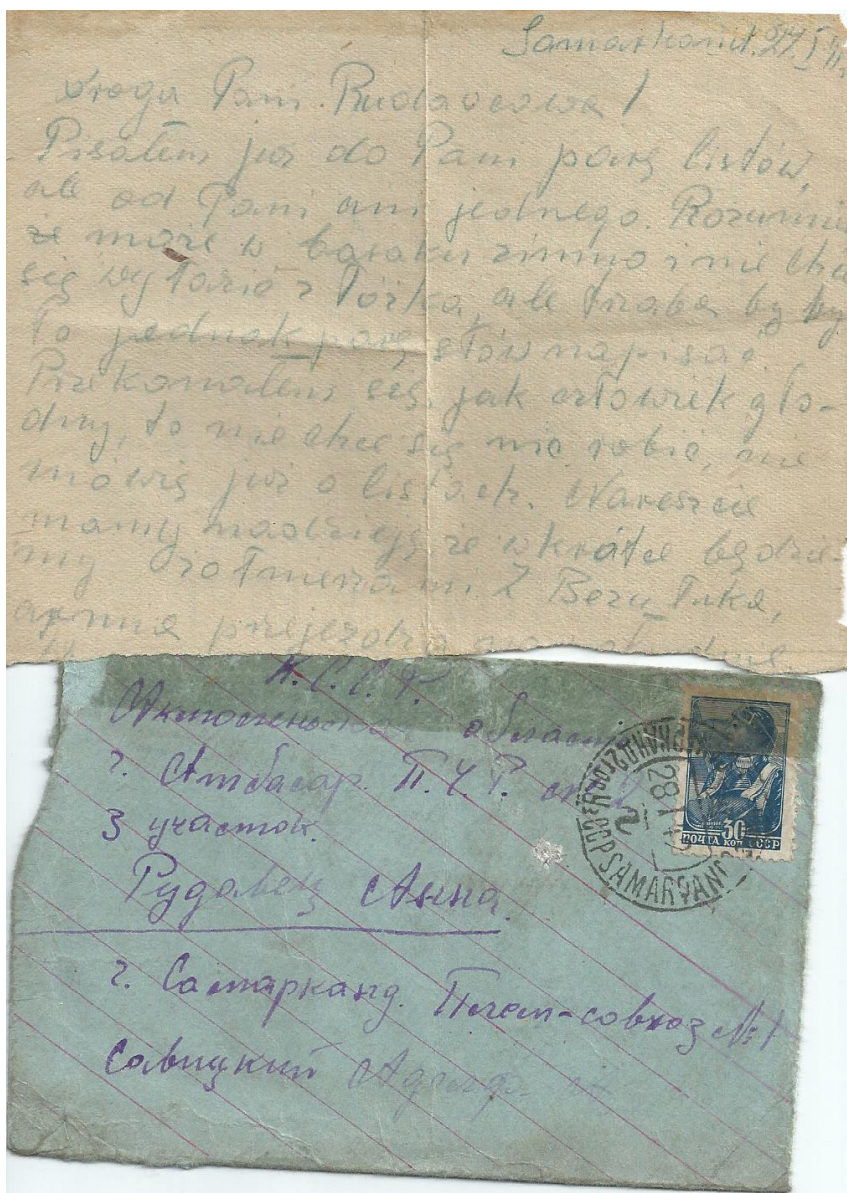 Samarkand. 27.I
Droga Pani Rudawcowa!
Pisałem już do Pani parę listów,
ale od Pani ani jednego. Rozumie
że może w baraku zimno i nie chce
się wyłazić z łóżka, ale trzeba by by
to jednak parę słów napisać.
Przekonałem się, jak człowiek gło-
dny, to nie chce się nic robić, nie
mówię już o listach. Nareszcie
mamy nadzieję że wkrótce będzie-
my żołnierzami Z Bezułuka,
armia
К.С.С.Р.
Акмолинская область
г. Атбасар. П.Ч.Р.
3 участок.
Рудавец Анна.
г. Самарканд. Плем-совхоз №1
Савицкий
30
ПОЧТА КОП СССР
28 1
SAMARQAND